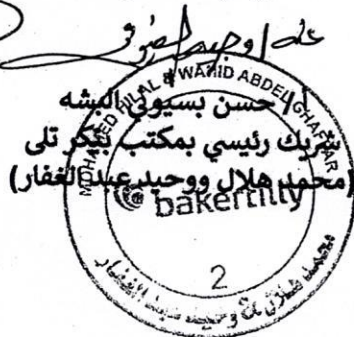 حسن بسيوني البشه
شريك رئيسي بمكتب بيكر تلى
(محمد هلال ووحيد عبد الغفار)
MOHAMED HILAL & WAHID ABDEL GHAFFAR
bakertilly
2
محمد هلال & وحيد عبد الغفار